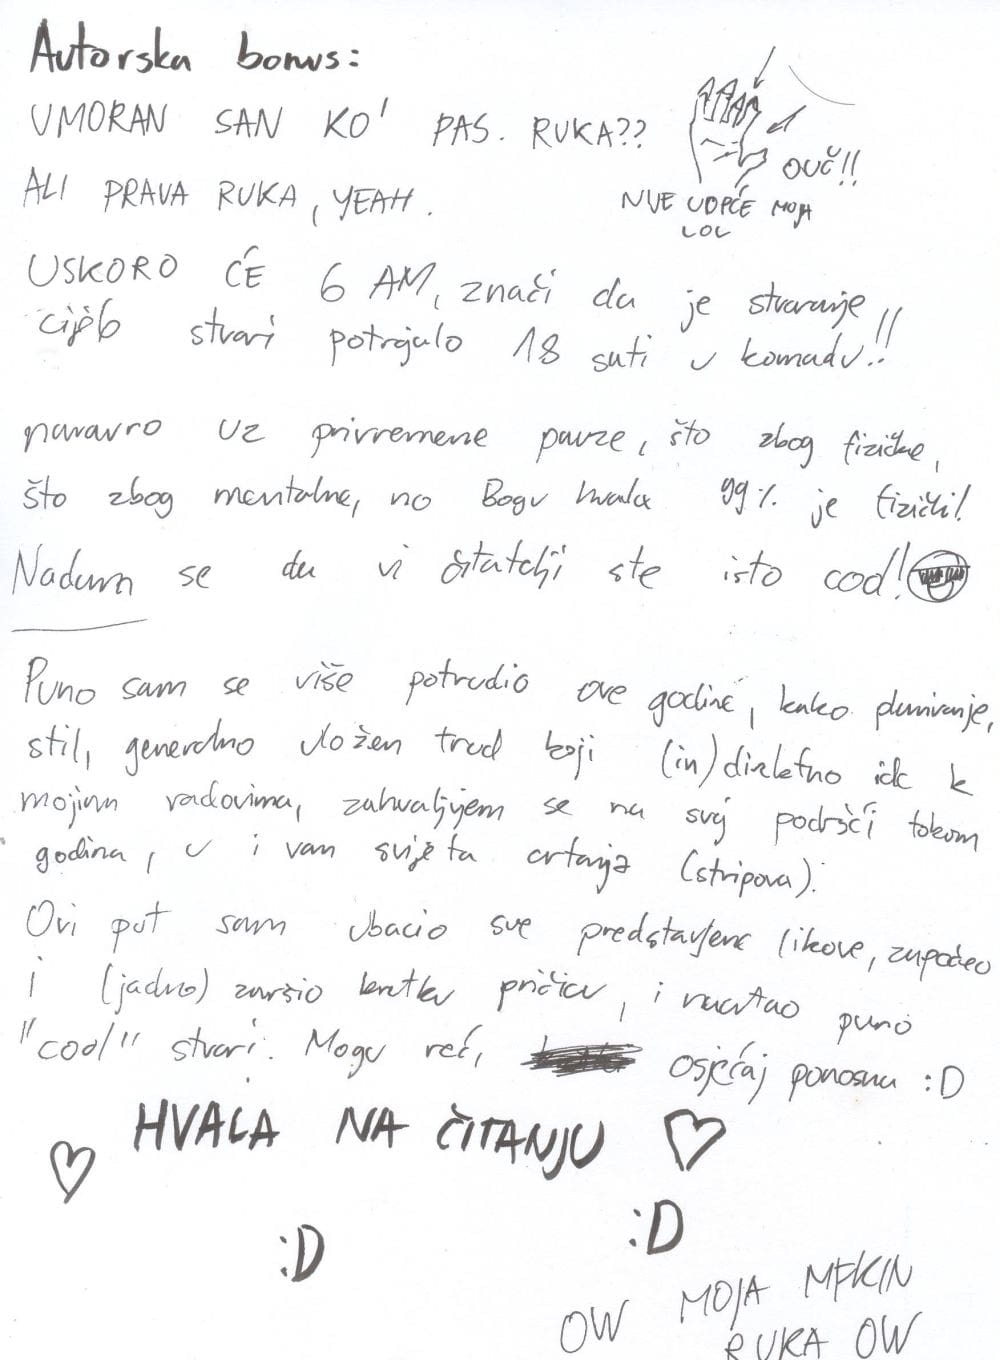 Autorska bonus:
UMORAN SAN KO' PAS. RUKA??
OUČ!!
ALI PRAVA RUKA, YEAH.
NIJE UOPĆE MOJA
LOL
USKORO ĆE 6 AM, znači da je stvaranje
cijelo stvari potrajalo 18 sati u komadu!!
naravno uz privremene pauze, što zbog fizičke,
što zbog mentalne, no Bogu hvala 99% je fizički!
Nadam se da vi čitatelji ste isto cool!
Puno sam se više potrudio ove godine, kako planiranje,
stil, generalno uložen trud koji (in)direktno ide k
mojim radovima, zahvaljujem se na svoj podršci tokom
godina, u i van svijeta crtanja (stripova).
Ovi put sam ubacio sve predstavljene likove, započeo
i (jadno) završio kratku pričicu, i nacrtao puno
"cool" stvari. Mogu reć, osjećaj ponosna :D
HVALA NA ČITANJU
:D :D
OW MOJA MFKIN
RUKA OW